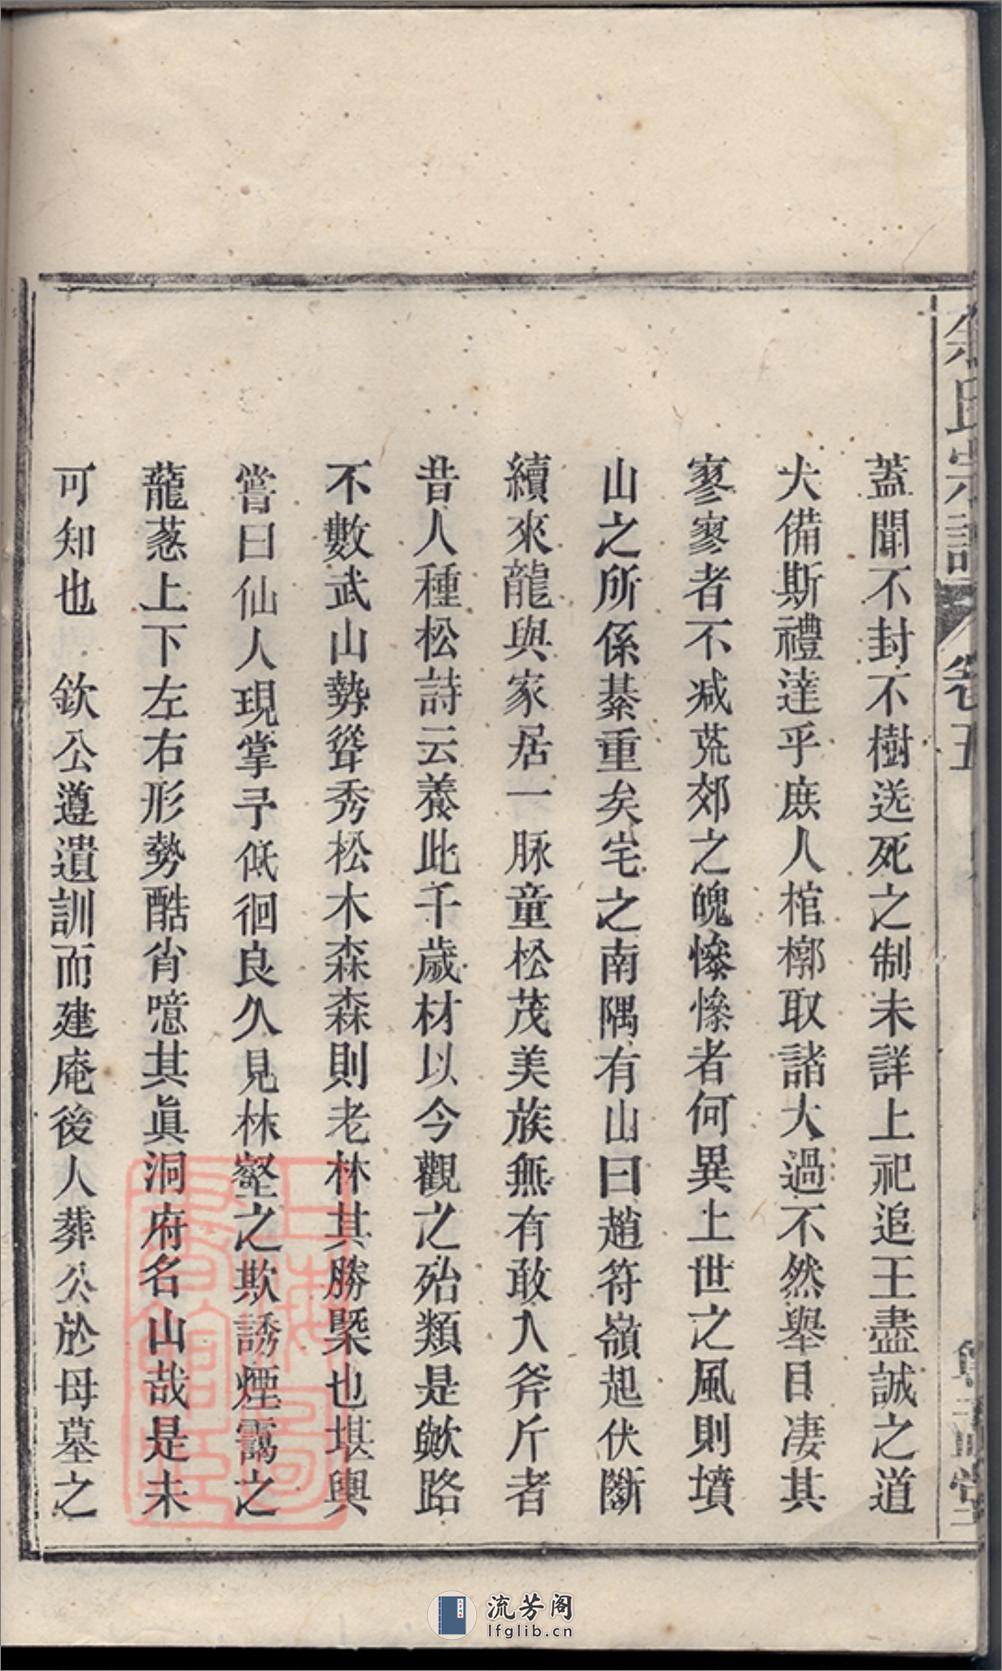 氏宗譜 卷五
蓋聞不封不樹送死之制未詳上祀追王盡誠之道
大備斯禮達乎庶人棺槨取諸大過不然舉目凄其
寥寥者不减荒郊之魄慘慘者何異上世之風則墳
山之所係綦重矣宅之南隅有山曰趙符嶺起伏斷
續來龍與家居一脉童松茂美族無有敢入斧斤者
昔人種松詩云養此千歲材以今觀之殆類是歟路
不數武山勢聳秀松木森森則老林其勝槩也堪輿
嘗曰仙人現掌予低徊良久見林壑之欺誘煙靄之
蘢蔥上下左右形勢酷肖噫其眞洞府名山哉是未
可知也 欽公遵遺訓而建庵後人葬公於母墓之
上海圖書館藏
流芳阁
lfglib.cn